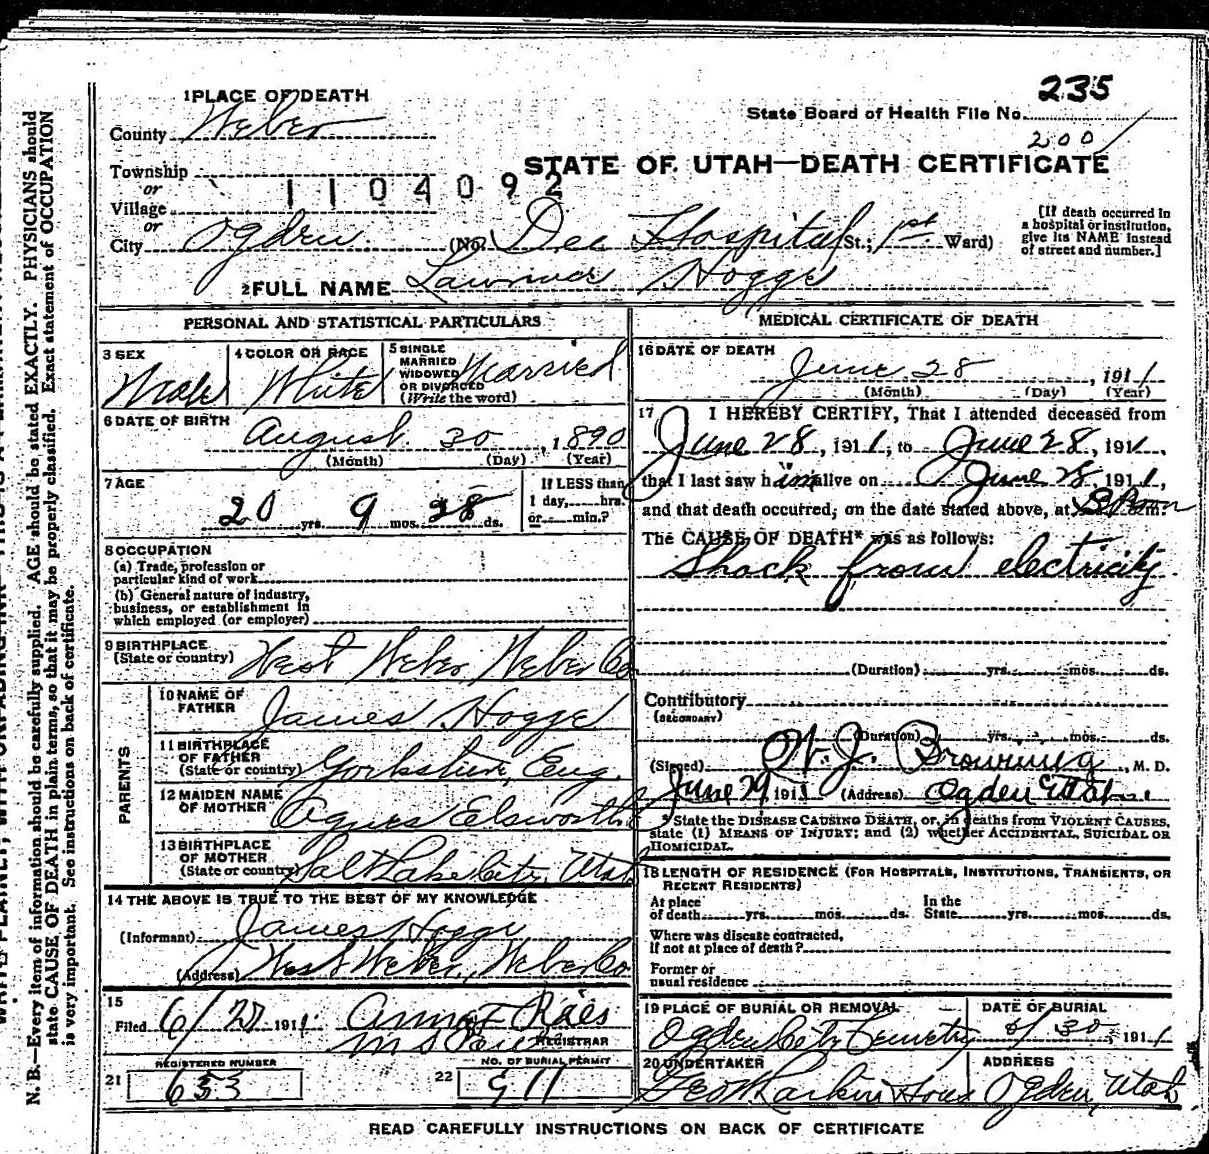 235
1 PLACE OF DEATH
State Board of Health File No.
200
County Weber
STATE OF UTAH—DEATH CERTIFICATE
Township
or
1104092
Village
or
City Ogden (No. Dee Hospital St.; 1st Ward)
[If death occurred in
a hospital or institution,
give its NAME instead
of street and number.]
2 FULL NAME Lawrence Hogge
PERSONAL AND STATISTICAL PARTICULARS
3 SEX
Male
4 COLOR OR RACE
White
5 SINGLE
MARRIED
WIDOWED
OR DIVORCED
(Write the word)
Married
6 DATE OF BIRTH
August 30, 1890
(Month) (Day) (Year)
7 AGE
20 yrs. 9 mos. 28 ds.
If LESS than
1 day, hrs.
or min.?
8 OCCUPATION
(a) Trade, profession or
particular kind of work
(b) General nature of industry,
business, or establishment in
which employed (or employer)
9 BIRTHPLACE
(State or country) West Weber, Weber Co
PARENTS
10 NAME OF
FATHER James Hogge
11 BIRTHPLACE
OF FATHER
(State or country) Yorkshire, Eng.
12 MAIDEN NAME
OF MOTHER Agnes Elsworth
13 BIRTHPLACE
OF MOTHER
(State or country) Salt Lake City, Utah
14 THE ABOVE IS TRUE TO THE BEST OF MY KNOWLEDGE
(Informant) James Hogge
(Address) West Weber, Weber Co
15
Filed 6/29 1911
REGISTRAR
REGISTERED NUMBER
21 653
NO. OF BURIAL PERMIT
22 911
MEDICAL CERTIFICATE OF DEATH
16 DATE OF DEATH
June 28, 1911
(Month) (Day) (Year)
17 I HEREBY CERTIFY, That I attended deceased from
June 28, 1911, to June 28, 1911,
that I last saw him alive on June 28, 1911,
and that death occurred, on the date stated above, at m.
The CAUSE OF DEATH* was as follows:
Shock from electricity
(Duration) yrs. mos. ds.
Contributory
(SECONDARY)
(Duration) yrs. mos. ds.
(Signed) Browning, M. D.
June 29, 1911 (Address) Ogden Utah
* State the DISEASE CAUSING DEATH, or, in deaths from VIOLENT CAUSES,
state (1) MEANS OF INJURY; and (2) whether ACCIDENTAL, SUICIDAL OR
HOMICIDAL.
18 LENGTH OF RESIDENCE (FOR HOSPITALS, INSTITUTIONS, TRANSIENTS, OR
RECENT RESIDENTS)
At place In the
of death yrs. mos. ds. State yrs. mos. ds.
Where was disease contracted,
if not at place of death?
Former or
usual residence
19 PLACE OF BURIAL OR REMOVAL
Ogden City Cemetery
DATE OF BURIAL
6/30 1911
20 UNDERTAKER
Larkin Sons
ADDRESS
Ogden, Utah
READ CAREFULLY INSTRUCTIONS ON BACK OF CERTIFICATE
N. B.—Every item of information should be carefully supplied. AGE should be stated EXACTLY. PHYSICIANS should
state CAUSE OF DEATH in plain terms, so that it may be properly classified. Exact statement of OCCUPATION
is very important. See instructions on back of certificate.